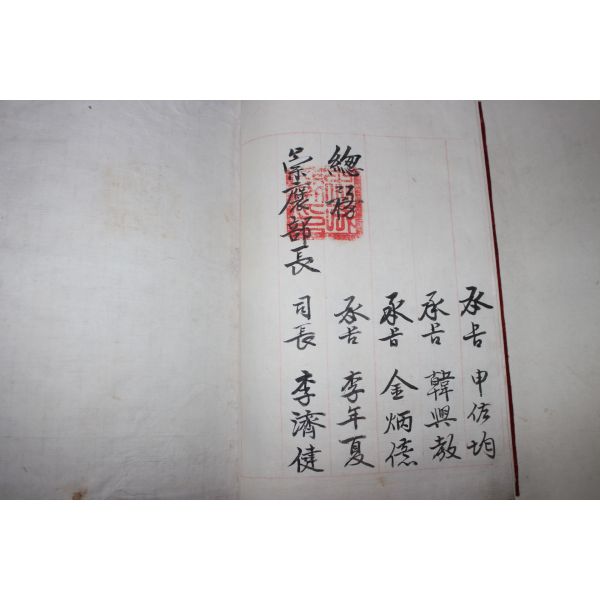 承旨 申佑均
承旨 韓興教
承旨 金炳億
總務 承旨 李年夏
部長 司長 李濟健